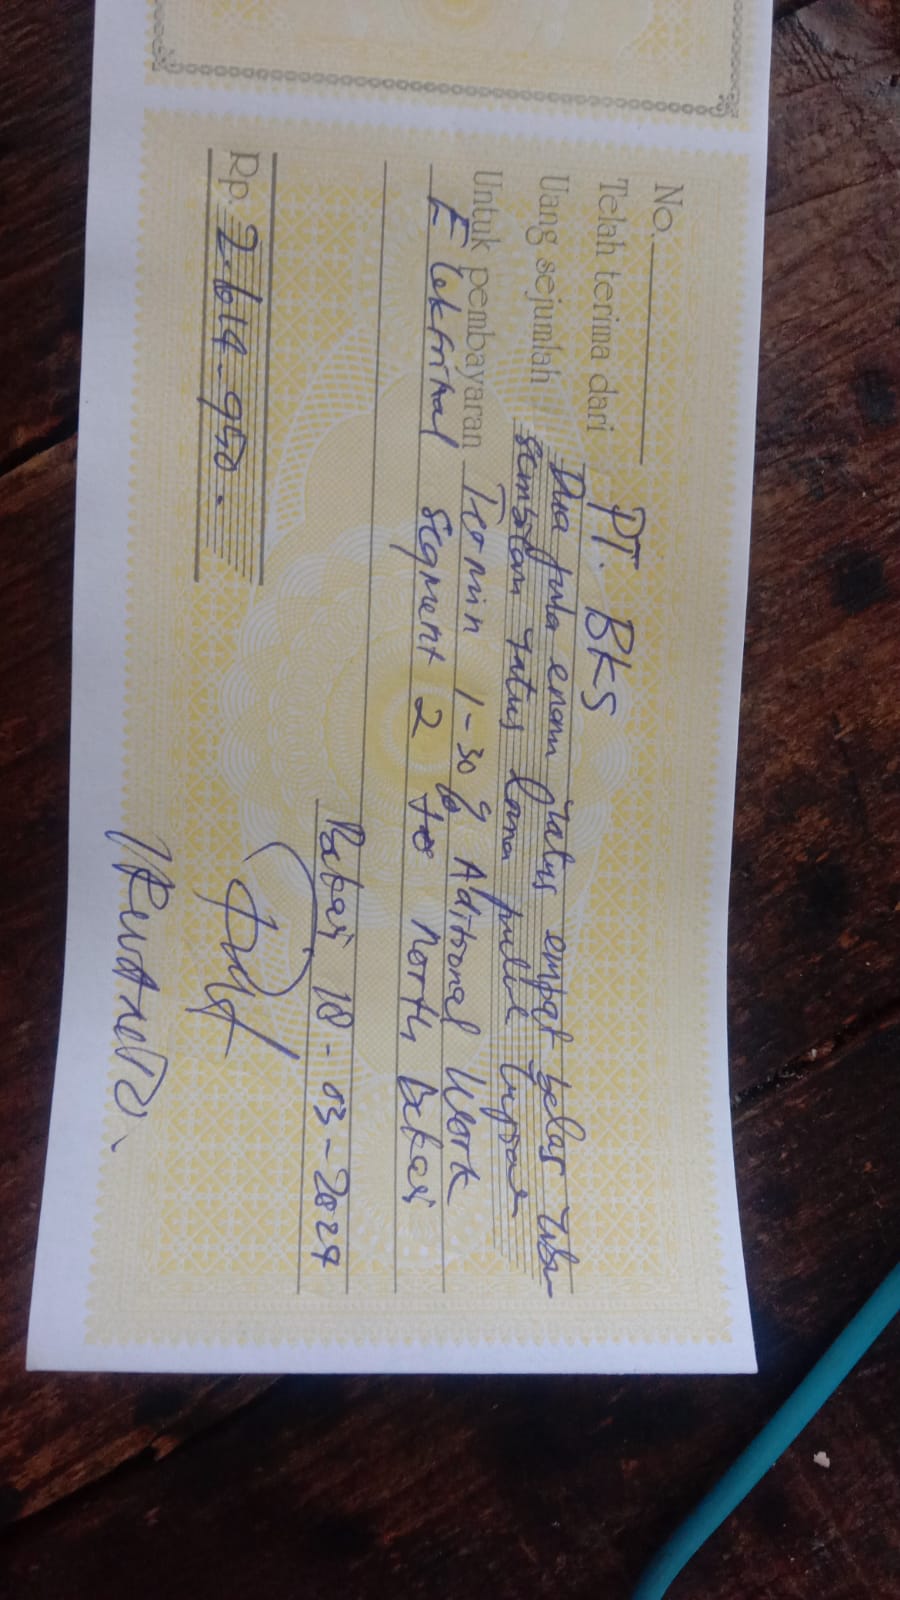 No.
Telah terima dari PT. BKS
Uang sejumlah Dua juta enam ratus empat belas ribu
sembilan ratus lima puluh rupiah
Untuk pembayaran Termin 1-30% Aditional Work
Elektrikal segment 2 to north Bekasi
Bekasi 18-03-2024
Rp. 2.614.950.